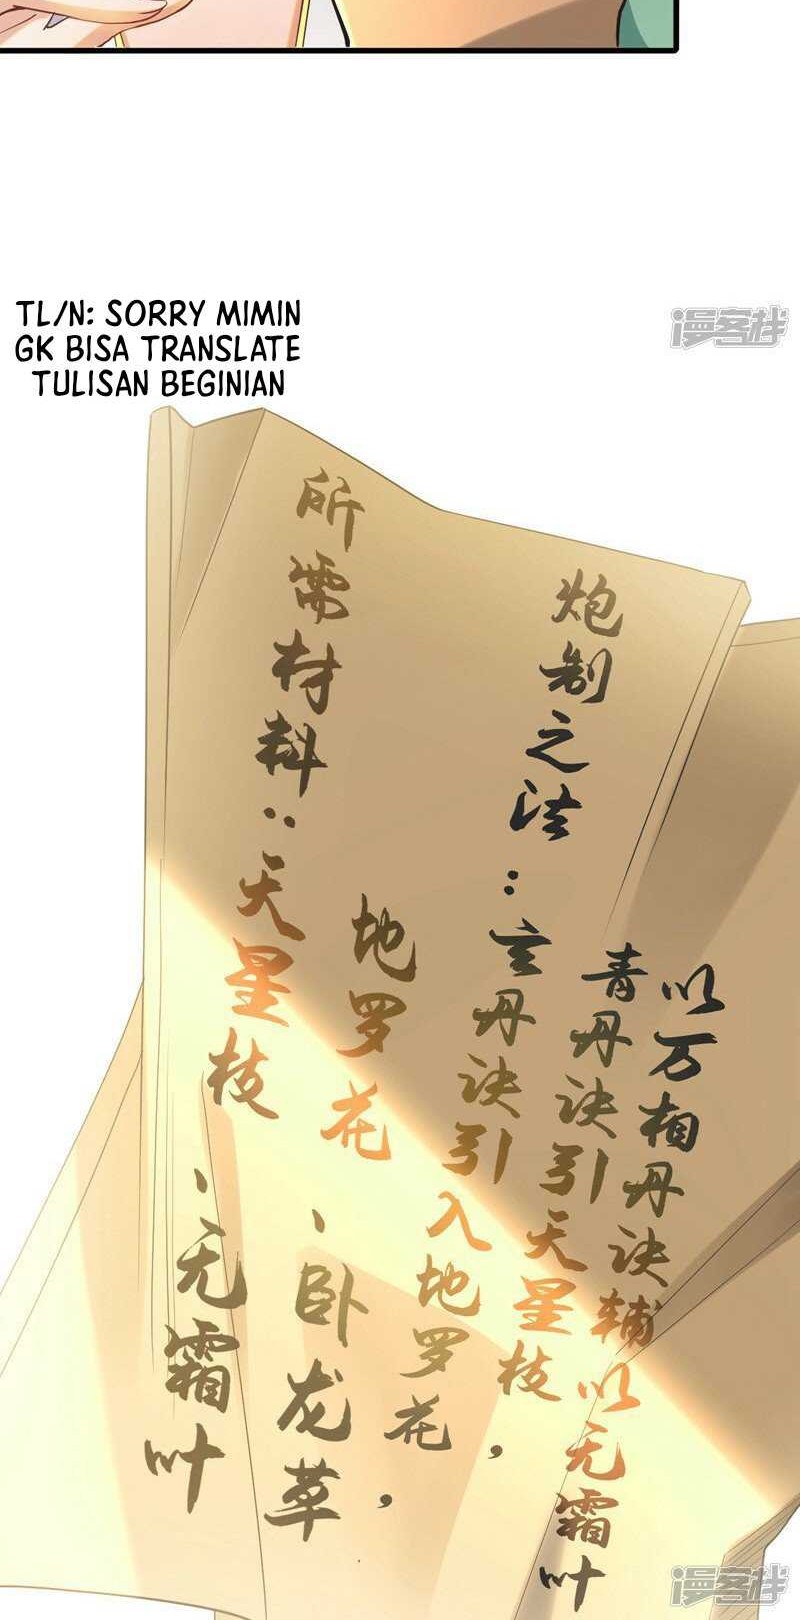 TL/N: SORRY MIMIN
GK BISA TRANSLATE
TULISAN BEGINIAN
漫客栈
所需材料:天星枝、无霜叶
地罗花、卧龙草
炮制之法:玄丹诀引入地罗花,
青丹诀引天星枝,
以万相丹诀辅以无霜叶
漫客栈